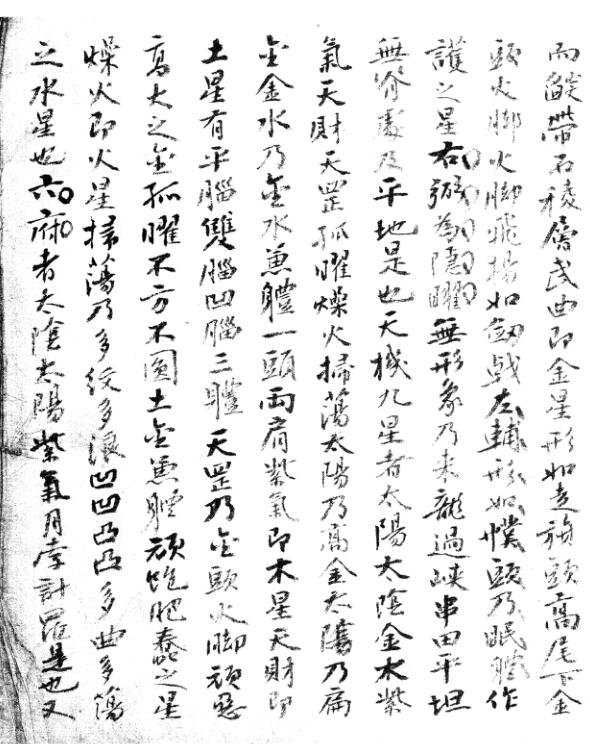 而巖帶石稜層武曲即金星形如走旗頭高尾下金
頭火脚火脚飛揚如劔戟左輔形如幞頭乃眠體作
護之星右弼為隱曜無形象乃来龍過峽串田平坦
無脊處及平地是也天機九星者太陽太陰金水紫
氣天財天罡孤曜燥火掃蕩太陽乃高金太陰乃扁
金金水乃金水兼體一頭兩肩紫氣即木星天財即
土星有平腦雙腦凹腦三體天罡乃金頭火脚頑惡
高大之金孤曜不方不圓土金兼體頑飽肥蠢之星
燥火即火星掃蕩乃多紋多浪凹凹凸凸多曲多蕩
之水星也六府者太陰太陽紫氣月孛計羅是也又